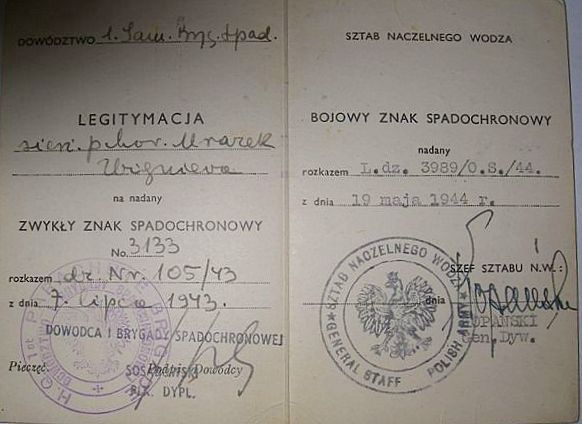 DOWÓDZTWO 1. Sam. Bryg. Spad.
LEGITYMACJA
sierż. pchor. Mrazek
Zbigniewa
na nadany
ZWYKŁY ZNAK SPADOCHRONOWY
No. 3133
rozkazem dz. Nr. 105/43
z dnia 7. lipca 1943.
DOWÓDCA I BRYGADY SPADOCHRONOWEJ
Pieczęć. Podpis Dowódcy
SOSABOWSKI
PŁK. DYPL.
SZTAB NACZELNEGO WODZA
BOJOWY ZNAK SPADOCHRONOWY
nadany
rozkazem L.dz. 3989/O.S./44.
z dnia 19 maja 1944 r.
SZEF SZTABU N.W.:
dnia
KOPAŃSKI
Gen. Dyw.
SZTAB NACZELNEGO WODZA
GENERAL STAFF POLISH ARMY